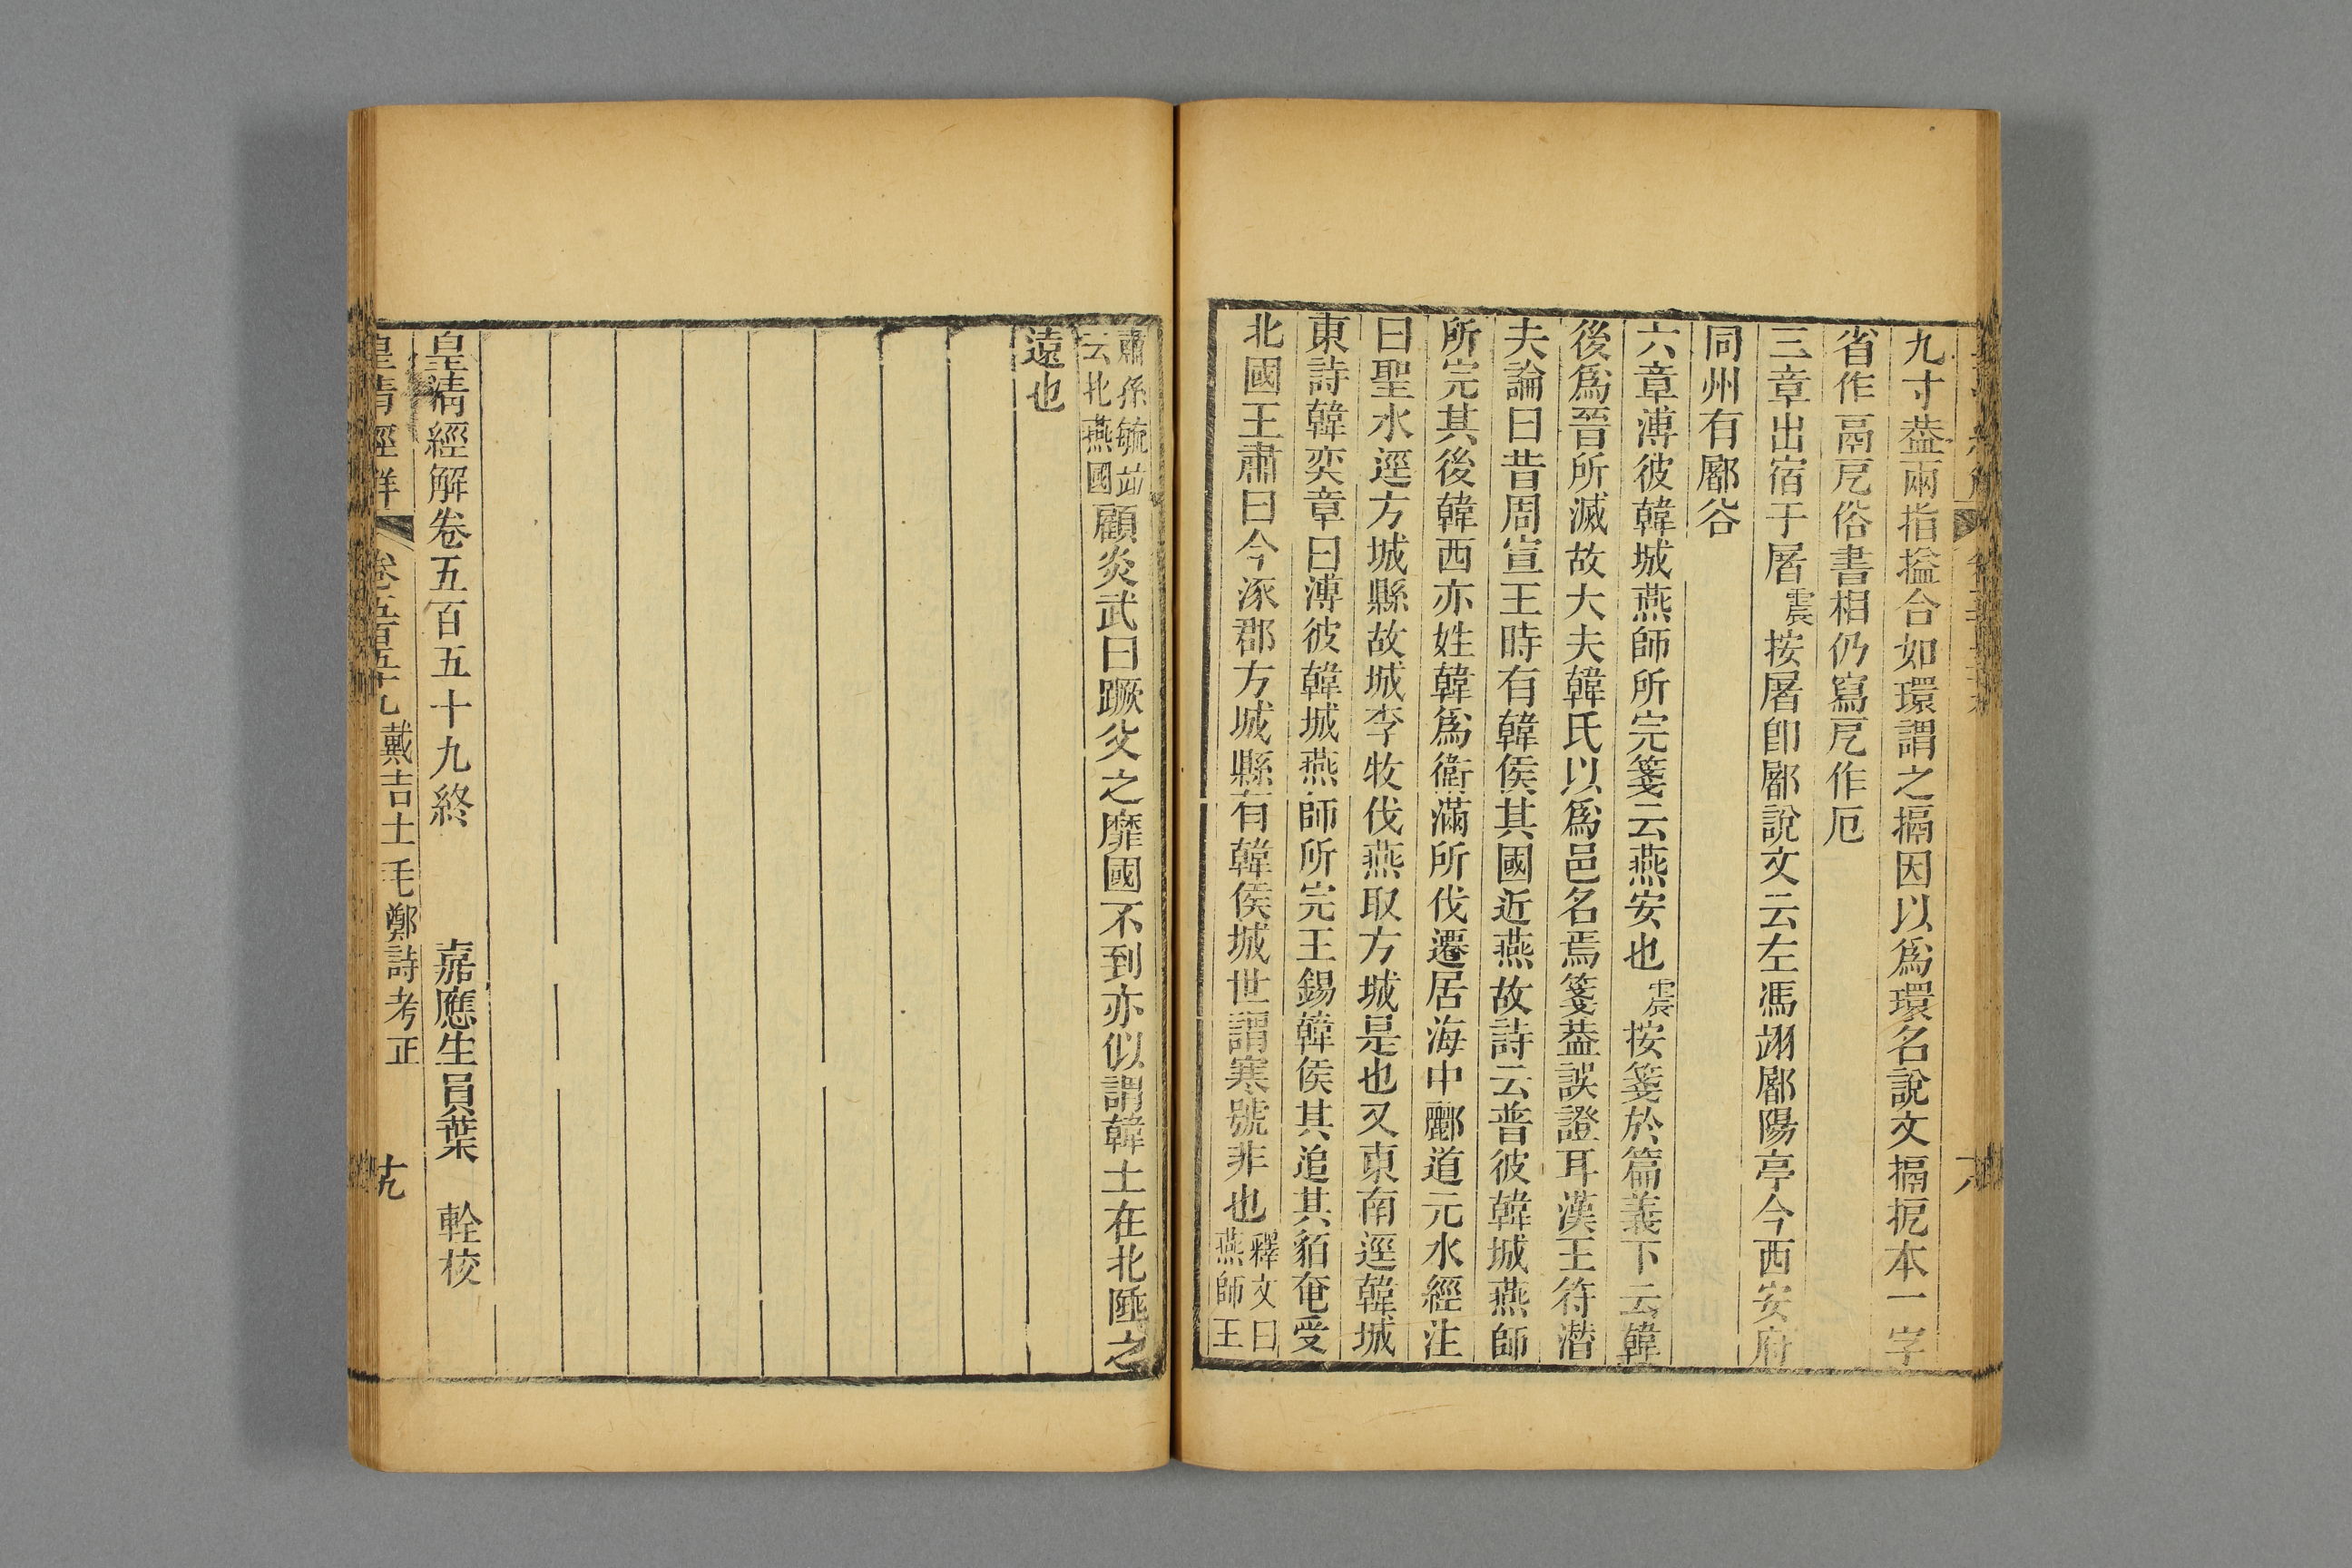 九寸葢兩指搤合如環謂之搹因以爲環名說文搹扼本一字
省作鬲戹俗書相仍寫戹作厄
三章出宿于屠震按屠卽鄏說文云左馮翊鄏陽亭今西安府
同州有鄏谷
六章溥彼韓城燕師所完箋云燕安也震按箋於篇義下云韓
後爲晉所滅故大夫韓氏以爲邑名焉箋葢誤證耳漢王符潛
夫論曰昔周宣王時有韓侯其國近燕故詩云普彼韓城燕師
所完其後韓西亦姓韓爲衛滿所伐遷居海中酈道元水經注
曰聖水逕方城縣故城李牧伐燕取方城是也又東南逕韓城
東詩韓奕章曰溥彼韓城燕師所完王錫韓侯其追其貊奄受
北國王肅曰今涿郡方城縣有韓侯城世謂寒號非也釋文曰燕師王
肅孫毓竝云北燕國顧炎武曰蹶父之靡國不到亦似謂韓土在北陲之
遠也
皇淸經解卷五百五十九終 嘉應生員葉 輇校
皇淸經解 卷五百五十九 戴吉士毛鄭詩考正 十九